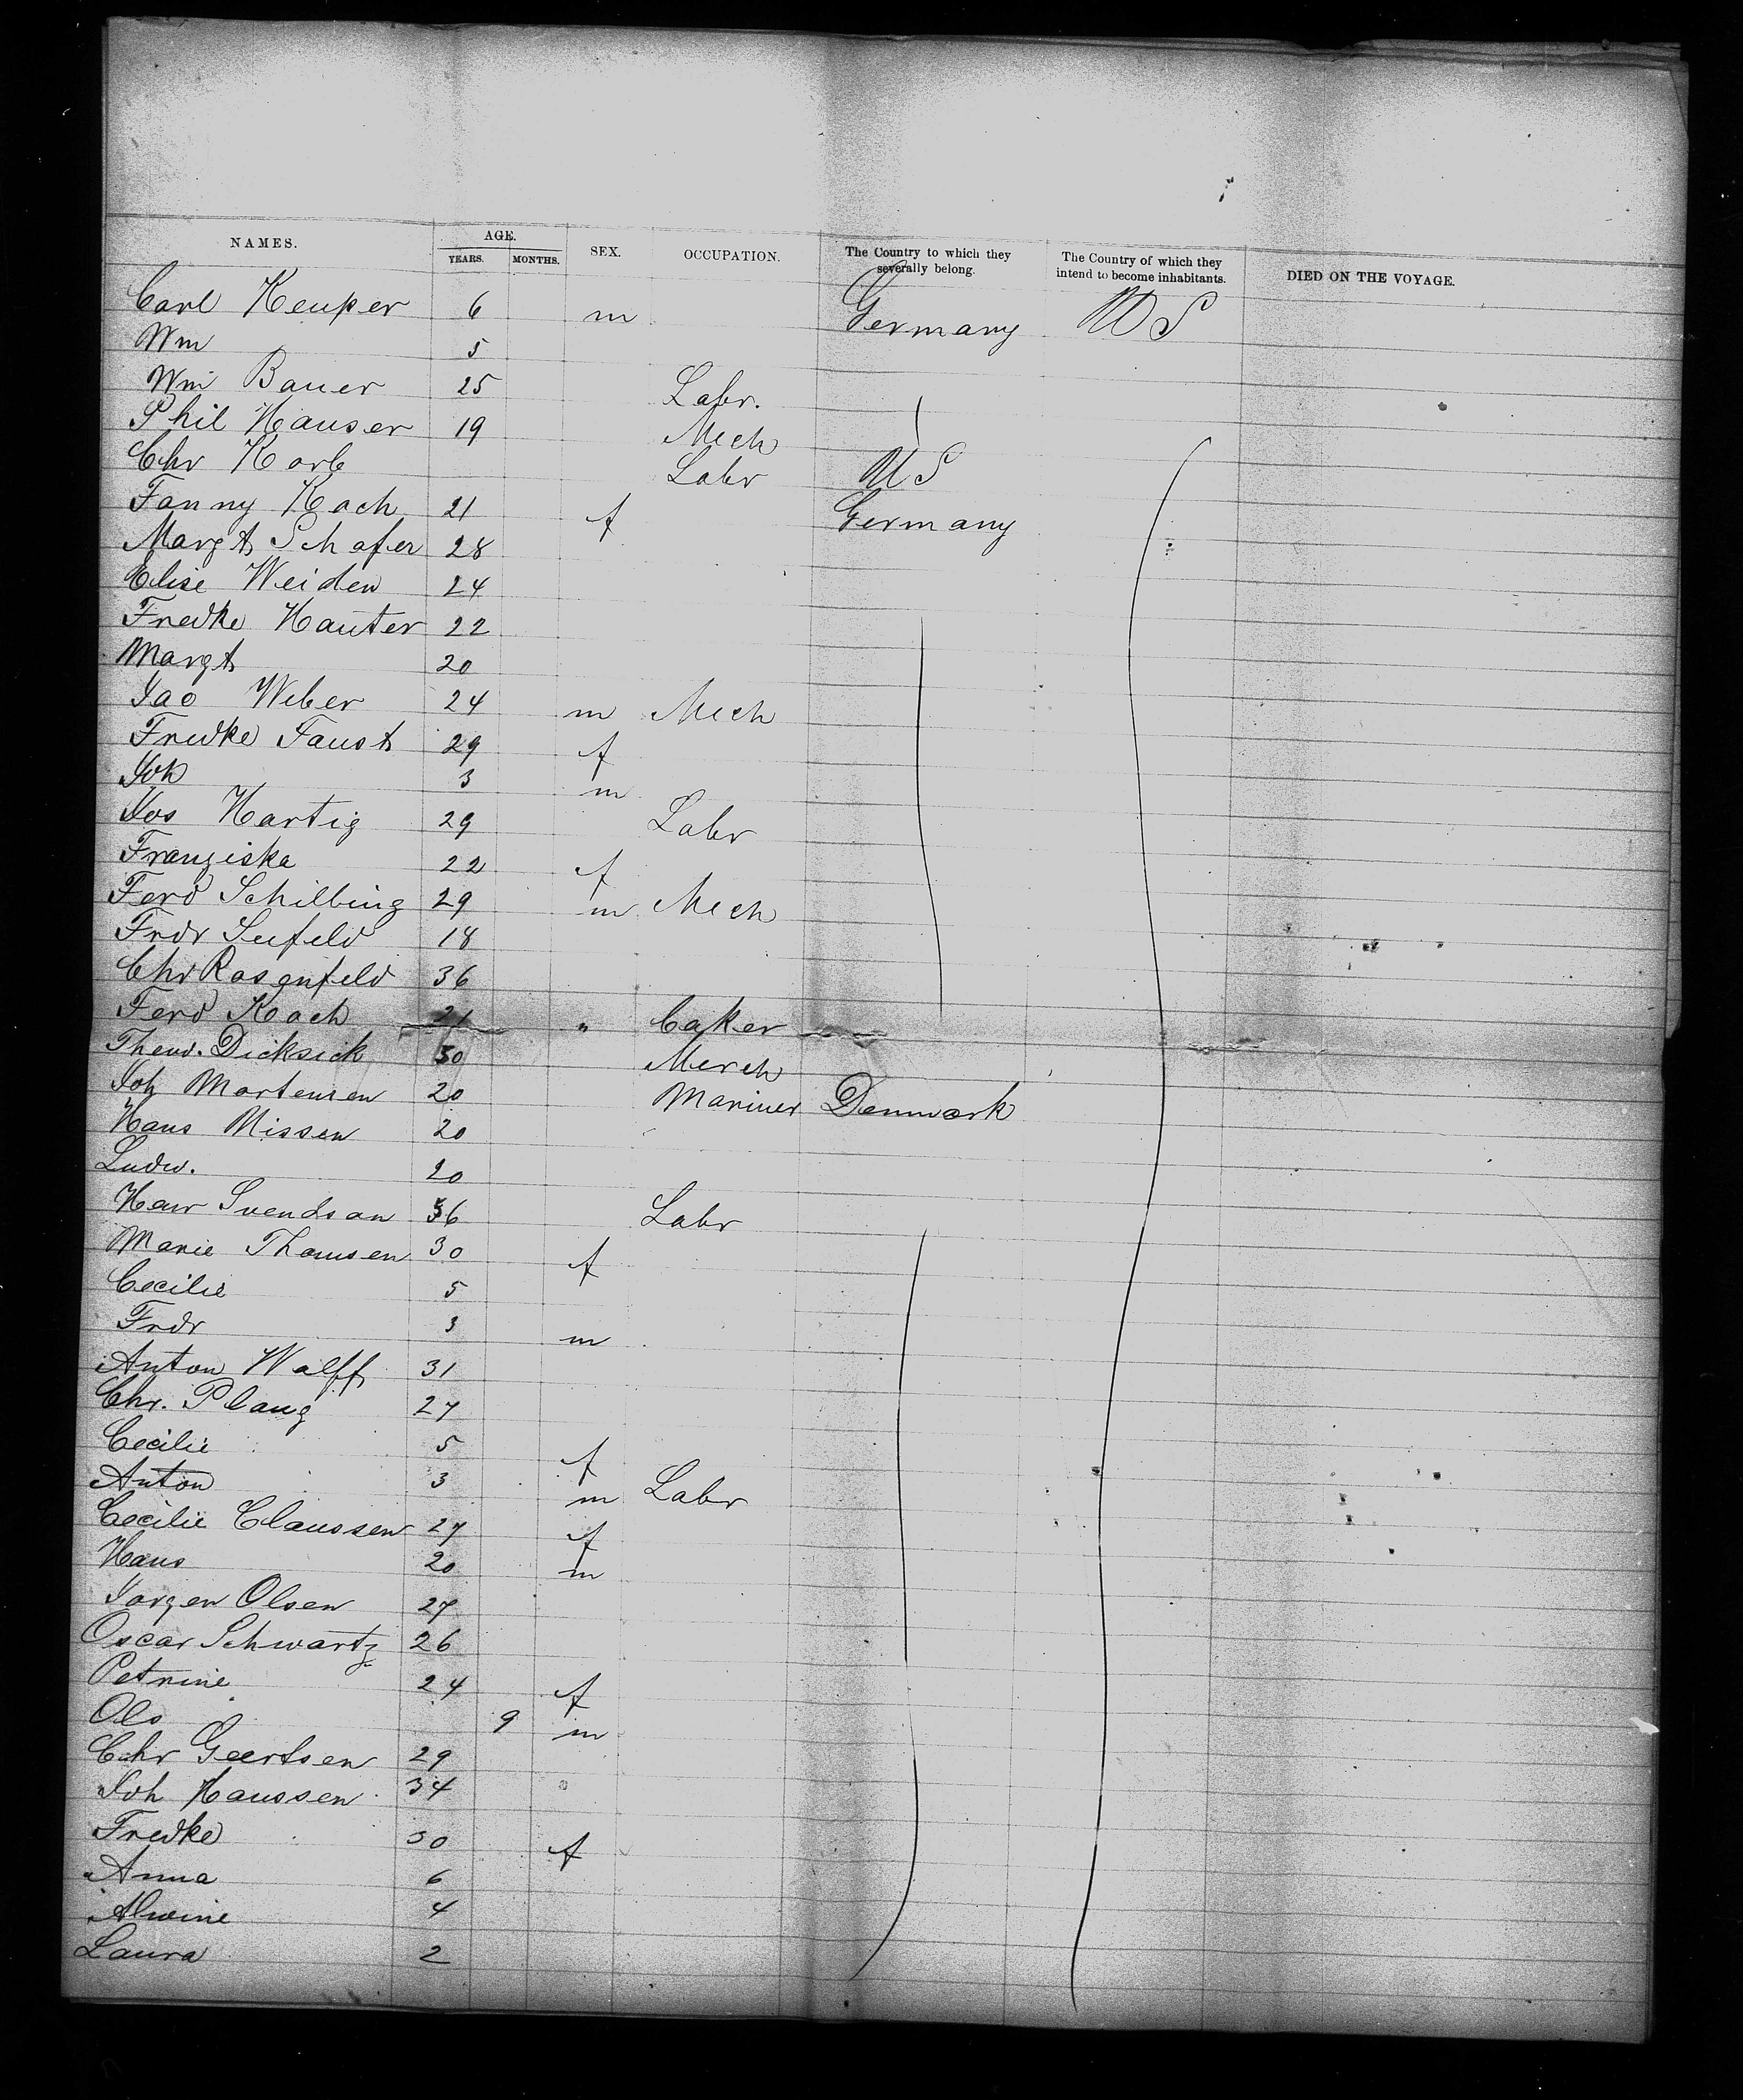 NAMES. AGE. SEX. OCCUPATION. The Country to which they severally belong. The Country of which they intend to become inhabitants. DIED ON THE VOYAGE.
YEARS. MONTHS.
Carl Keuper 6 m Germany US
Wm 5
Wm Bauer 25 Labr.
Phil Hauser 19 Mech
Chr Korb Labr US
Fanny Koch 21 f Germany
Margt Schafer 28
Elise Weiden 24
Fredke Hauter 22
Margt 20
Jac Weber 24 m Mech
Fredke Faust 29 f
Joh 3 m
Jos Hartig 29 Labr
Franziska 22 f
Ferd Schilbing 29 m Mech
Frdr Seefeld 18
Chr Rosenfeld 36
Ferd Koch 21 " Caker
Theod. Dicksick 30 Merch
Joh Mortensen 20 Mariner Denmark
Hans Nissen 20
Ludw. 20
Svendsen 36 Labr
Marie Thomsen 30 f
Cecilie 5
Frdr 3 m
Anton Wolff 31
Chr. Plaug 27
Cecilie 5 f
Anton 3 m Labr
Cecilie Claussen 27 f
Hans 20 m
Jorgen Olsen 27
Oscar Schwartz 26
Petrine 24 f
Ole 9 m
Chr Geertsen 29
Joh Hanssen 34
Fredke 30 f
Anna 6
Alwine 4
Laura 2